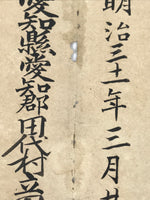 明治三十一年三月廿
愛知縣愛知郡田代村